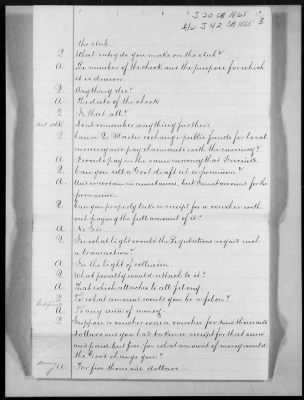 J 20 CB 1865
A/W J 42 CB 1865
3.
the stub.
Q What entry do you make on the stub?
A The number of the check and the purpose for which
it is drawn.
Q Anything else?
A The date of the check
Q Is that all?
A I dont remember anything further.
Q Can a Q. Master exchange public funds for local
currency and pay claimants with the currency?
A I could pay in the same currency that I receive.
Q Can you sell a Govt draft at a premium?
A. Under certain circumstances, but I must account for the
premium.
Q Can you properly take a receipt for a voucher with
out paying the full amount of it?
A No Sir.
Q In what light would the Regulations regard such
a transaction?
A In the light of collusion.
Q What penalty would attach to it?
A That which attaches to all felony.
Q To what amount would you be a felon?
A To any sum of money.
Q Suppose a voucher was a voucher for nine thousand
dollars and you had taken a receipt for that sum
and paid but five, for what amount of money would
the Govt charge you?
A For five thousand dollars.